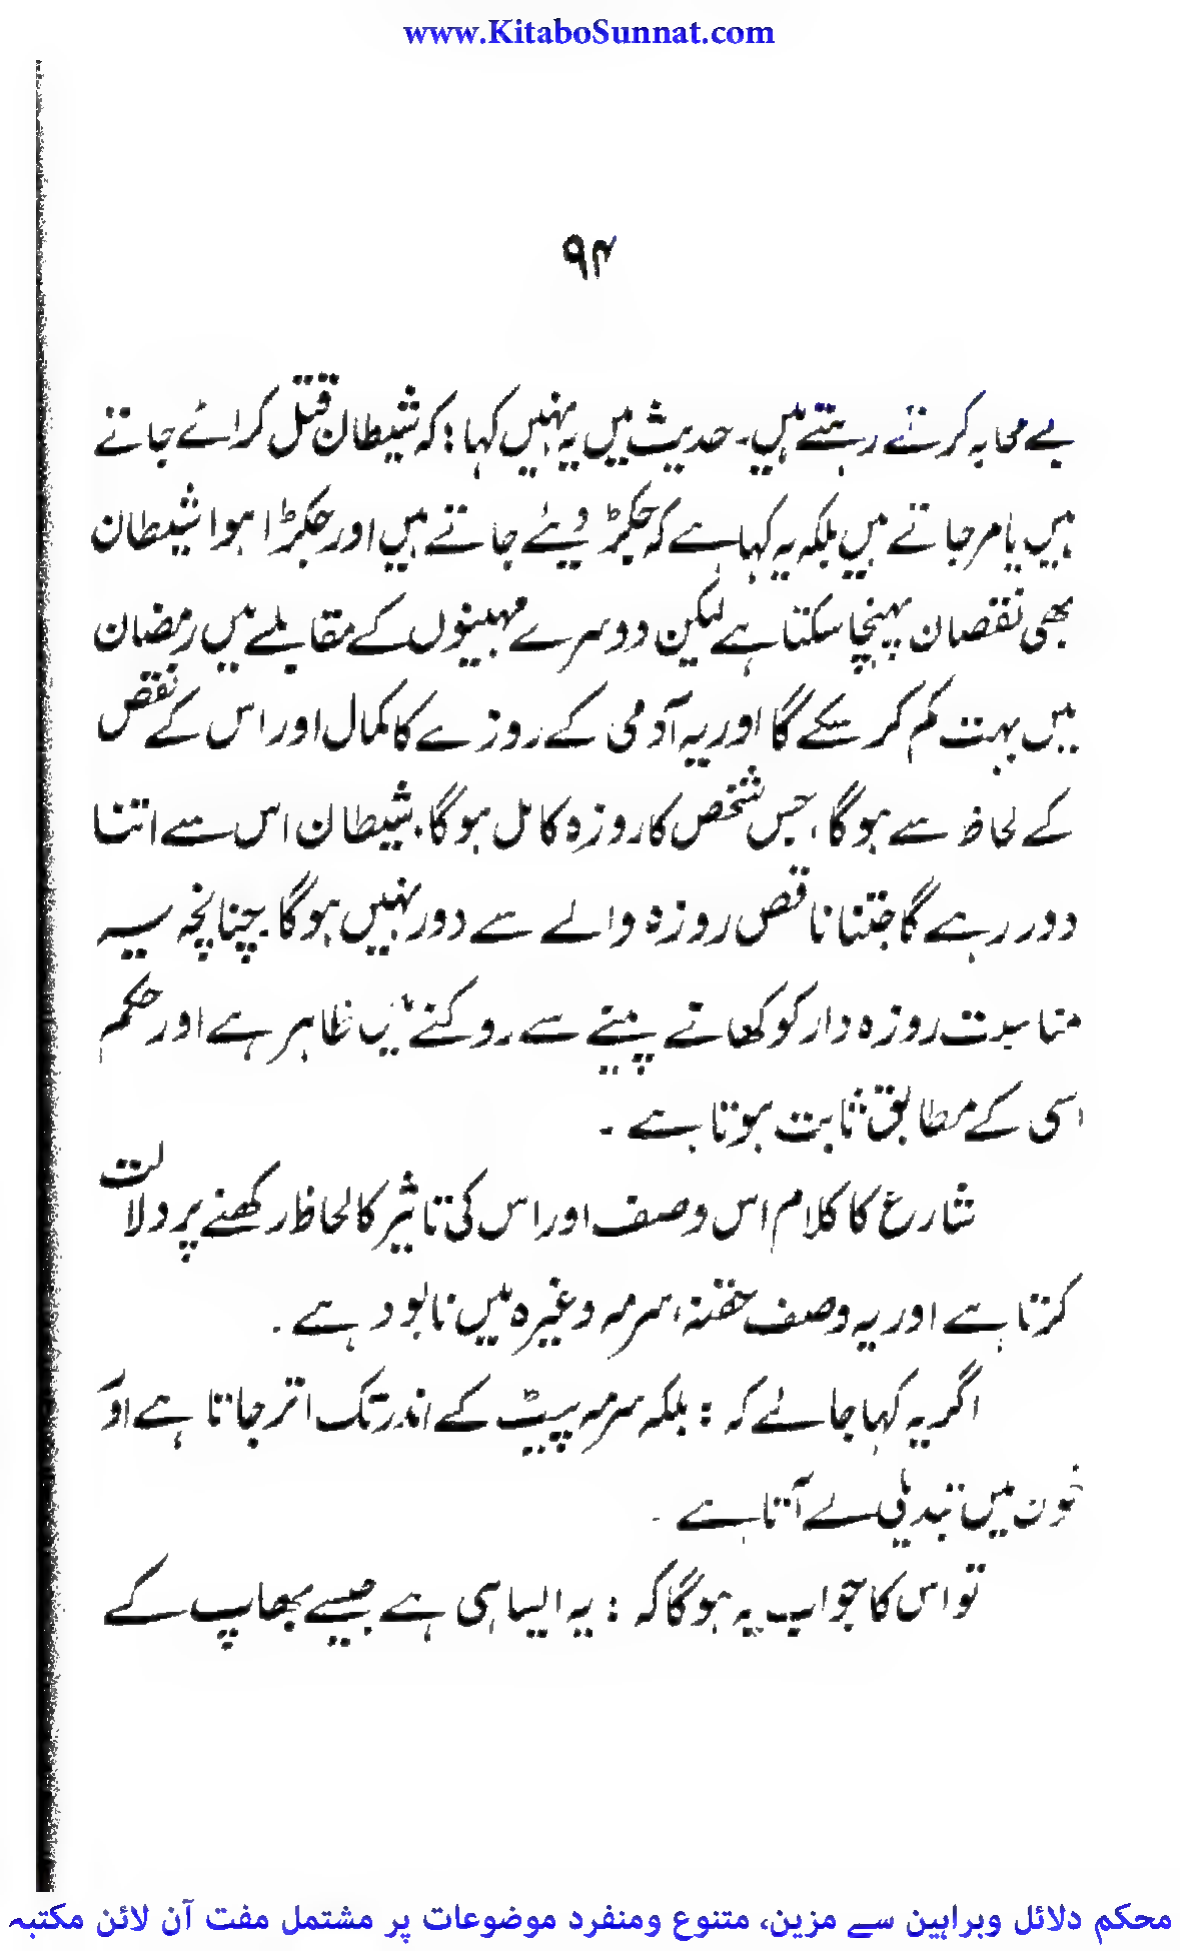 www.KitaboSunnat.com
۹۴
بے محابہ کرتے رہتے ہیں۔ حدیث میں یہ نہیں کہا : کہ شیطان قتل کرائے جاتے
ہیں یا مر جاتے ہیں بلکہ یہ کہا ہے کہ جکڑ دیئے جاتے ہیں اور جکڑا ہوا شیطان
بھی نقصان پہنچا سکتا ہے لیکن دوسرے مہینوں کے مقابلے میں رمضان
میں بہت کم کر سکے گا اور یہ آدمی کے روزے کا کمال اور اس کے نقص
کے لحاظ سے ہو گا، جس شخص کا روزہ کامل ہو گا۔ شیطان اس سے اتنا
دور رہے گا جتنا ناقص روزہ والے سے دور نہیں ہو گا چنانچہ یہ
مناسبت روزہ دار کو کھانے پینے سے روکنے میں ظاہر ہے اور حکم
اسی کے مطابق ثابت ہوتا ہے ۔
شارع کا کلام اس وصف اور اس کی تاثیر کا لحاظ رکھنے پر دلالت
کرتا ہے اور یہ وصف حقنہ، سرمہ وغیرہ میں نابود ہے ۔
اگر یہ کہا جائے کہ : بلکہ سرمہ پیٹ کے اندر تک اتر جاتا ہے اور
خون میں تبدیلی لے آتا ہے ۔
تو اس کا جواب یہ ہو گا کہ : یہ ایسا ہی ہے جیسے بھاپ کے
محکم دلائل وبراہین سے مزین، متنوع ومنفرد موضوعات پر مشتمل مفت آن لائن مکتبہ